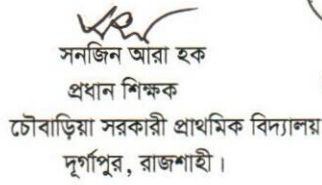 সনজিন আরা হক
প্রধান শিক্ষক
চৌবাড়িয়া সরকারী প্রাথমিক বিদ্যালয়
দূর্গাপুর, রাজশাহী।